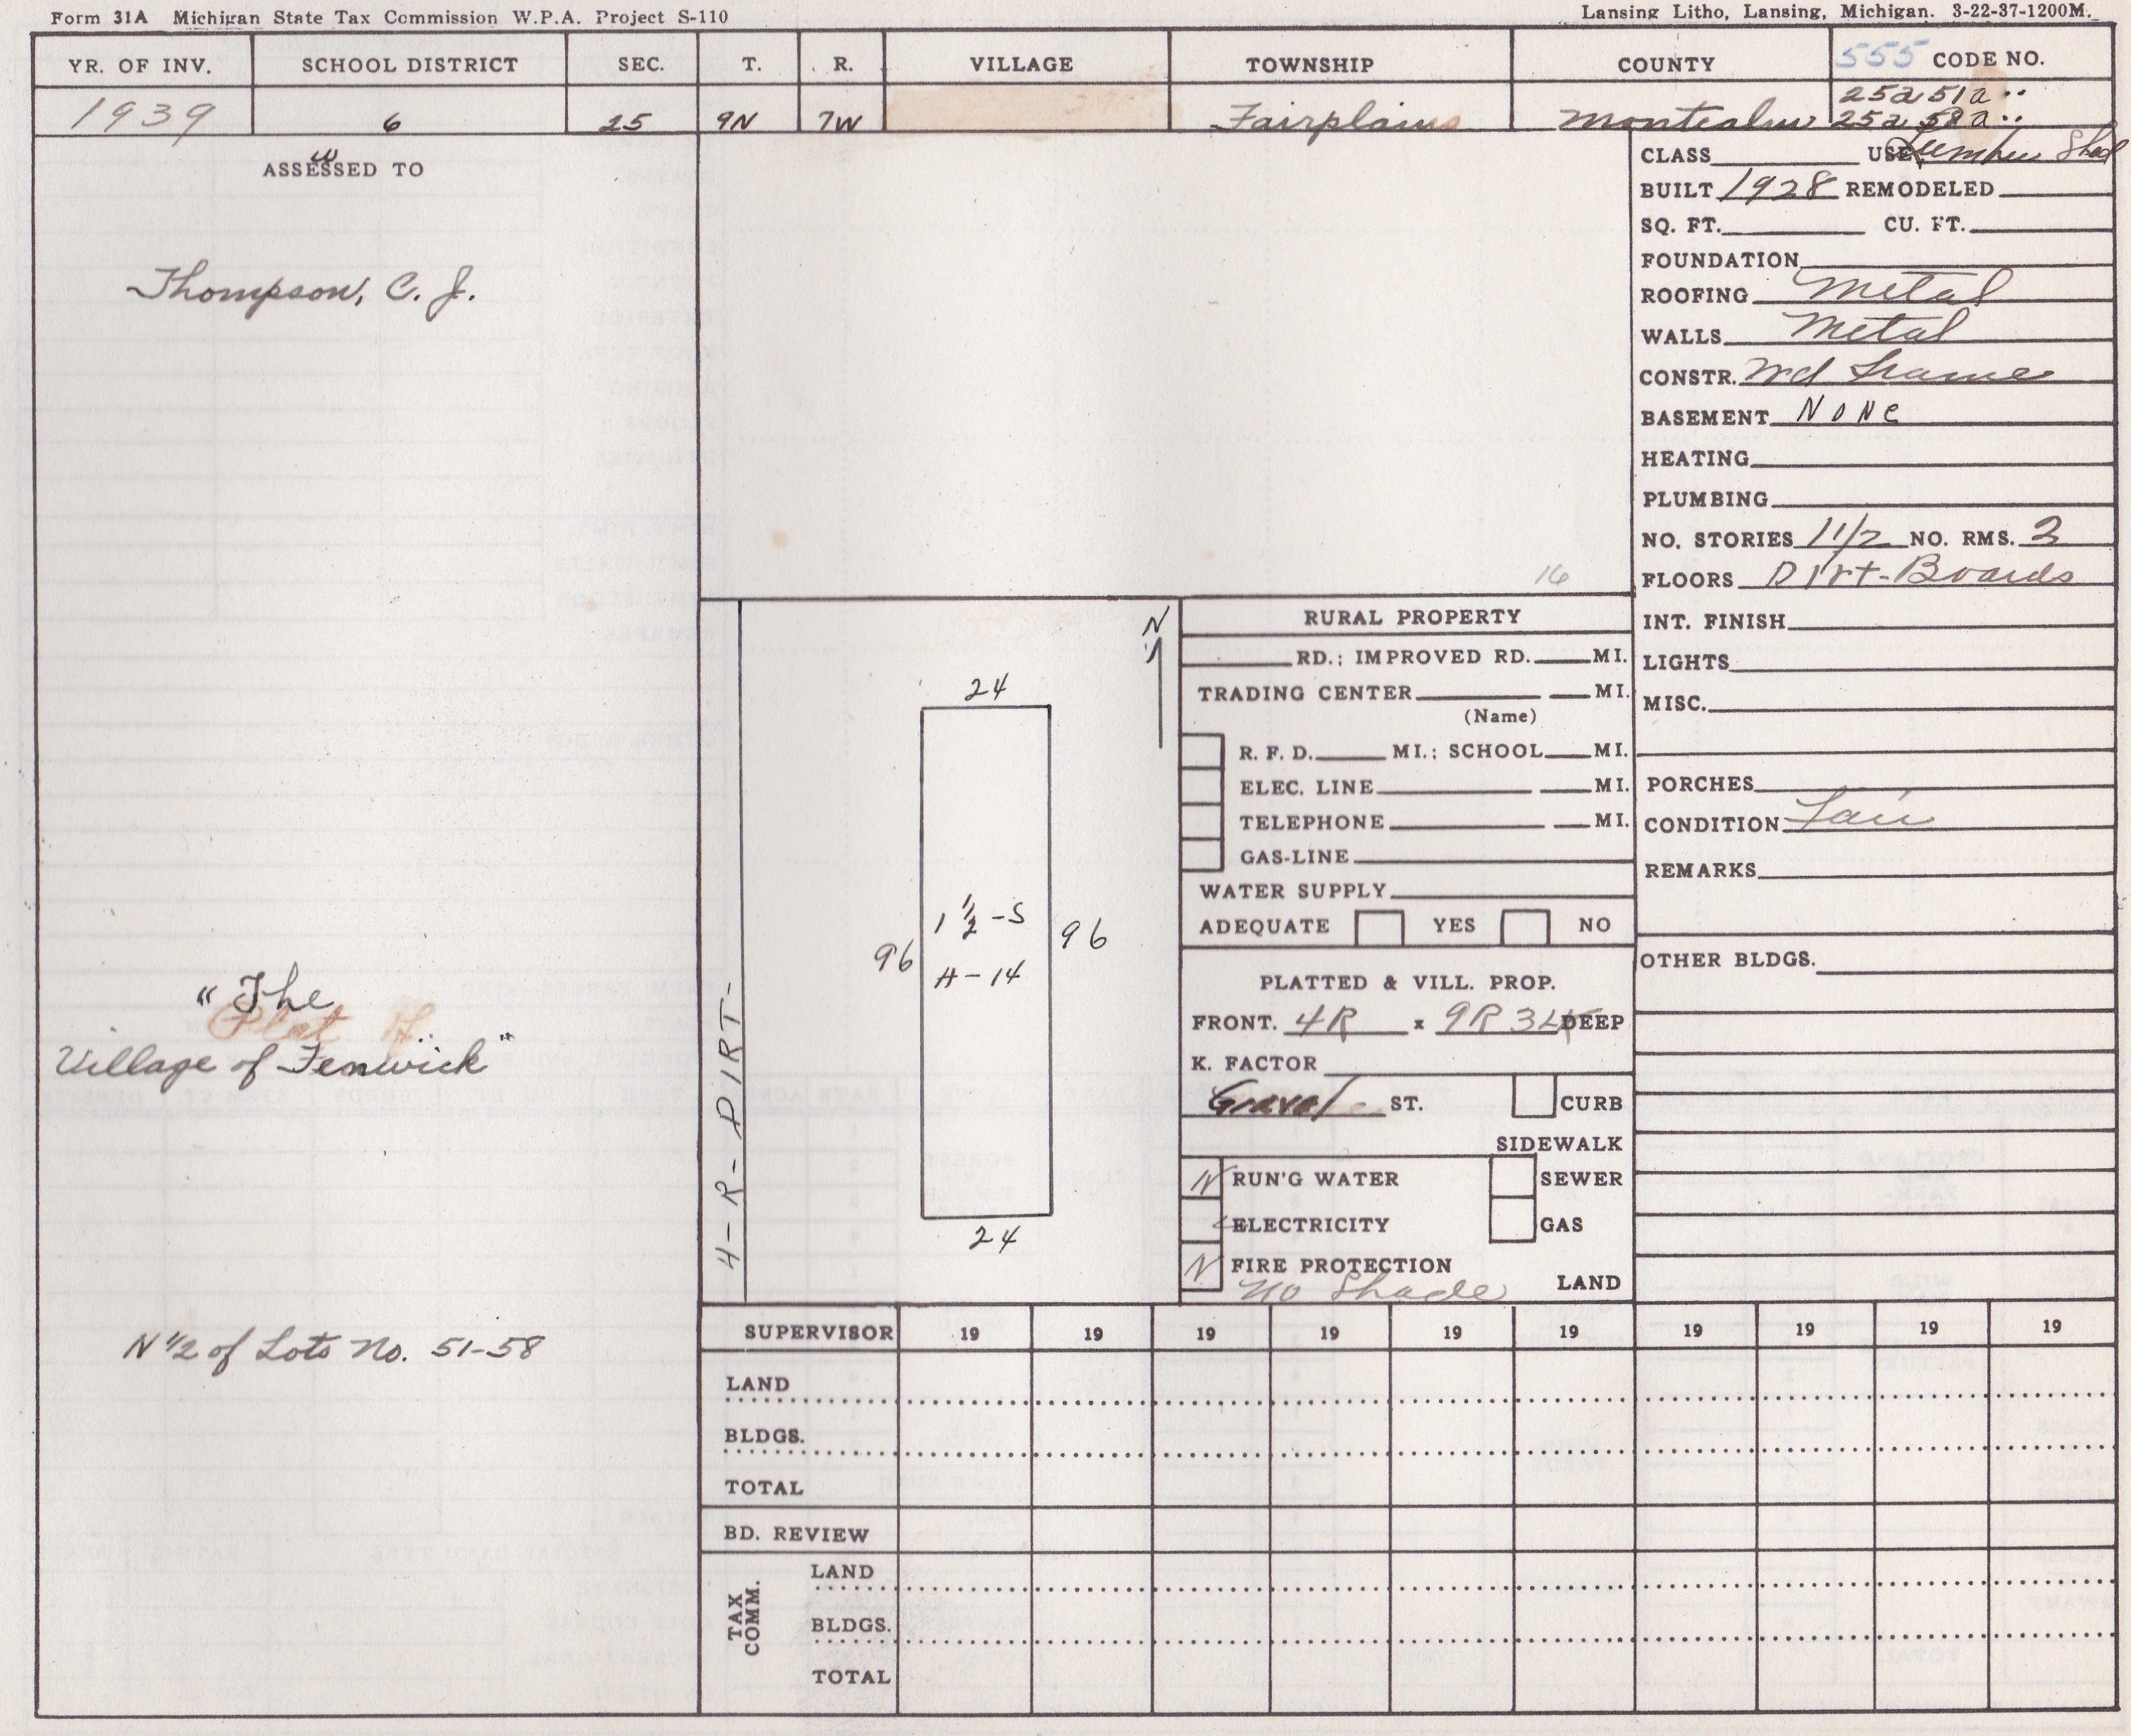 Form 31A Michigan State Tax Commission W.P.A. Project S-110
Lansing Litho, Lansing, Michigan. 3-22-37-1200M.
YR. OF INV. SCHOOL DISTRICT SEC. T. R. VILLAGE TOWNSHIP COUNTY 555 CODE NO.
1939 6 25 9N 7W Fairplains Montcalm
25a 51a ..
25a 58a ..
ASSESSED TO
w
Thompson, C. J.
"The
Plat
Village of Fenwick"
N 1/2 of Lots No. 51-58
CLASS USE Lumber Shed
BUILT 1928 REMODELED
SQ. FT. CU. FT.
FOUNDATION
ROOFING Metal
WALLS Metal
CONSTR. Wd Frame
BASEMENT None
HEATING
PLUMBING
NO. STORIES 1 1/2 NO. RMS. 3
FLOORS Dirt-Boards
INT. FINISH
LIGHTS
MISC.
PORCHES
CONDITION Fair
REMARKS
OTHER BLDGS.
16
4-R-DIRT-
N
24
96
1 1/2-S
H-14
96
24
RURAL PROPERTY
RD.; IMPROVED RD. MI.
TRADING CENTER MI.
(Name)
R. F. D. MI.; SCHOOL MI.
ELEC. LINE MI.
TELEPHONE MI.
GAS-LINE
WATER SUPPLY
ADEQUATE YES NO
PLATTED & VILL. PROP.
FRONT. 4R x 9R 3LK DEEP
K. FACTOR
Gravel ST. CURB
SIDEWALK
N RUN'G WATER SEWER
ELECTRICITY GAS
N FIRE PROTECTION
No Shade LAND
SUPERVISOR 19 19 19 19 19 19 19 19 19 19
LAND
BLDGS.
TOTAL
BD. REVIEW
TAX COMM.
LAND
BLDGS.
TOTAL